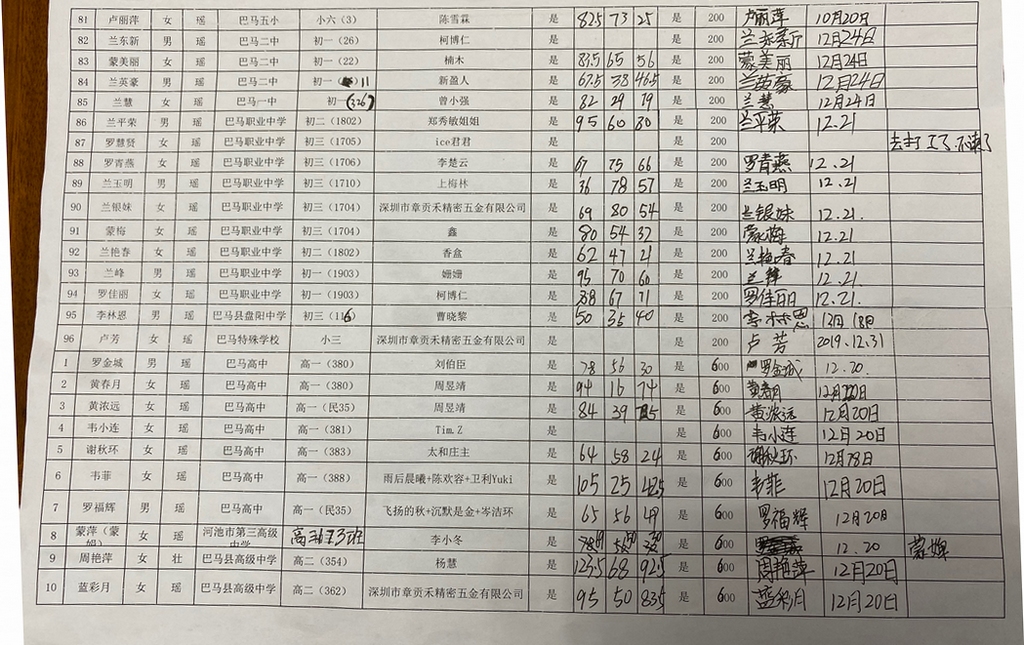 81 卢丽萍 女 瑶 巴马五小 小六（3） 陈雪霖 是 825 73 25 是 200 卢丽萍 10月20日
82 兰东新 男 瑶 巴马二中 初一（26） 柯博仁 是 是 200 兰东新 12月24日
83 蒙美丽 女 瑶 巴马二中 初一（22） 楠木 是 83.5 65 56 是 200 蒙美丽 12月24日
84 兰英豪 男 瑶 巴马二中 初一 11 新盈人 是 67.5 38 46.5 是 200 兰英豪 12月24日
85 兰慧 女 瑶 巴马一中 初一（326） 曾小强 是 82 29 79 是 200 兰慧 12月24日
86 兰平荣 男 瑶 巴马职业中学 初二（1802） 郑秀敏姐姐 是 95 60 80 是 200 兰平荣 12.21
87 罗慧贤 女 瑶 巴马职业中学 初三（1705） ice君君 是 是 200 去打工了,不读了
88 罗青燕 女 瑶 巴马职业中学 初三（1706） 李楚云 是 67 75 66 是 200 罗青燕 12.21
89 兰玉明 男 瑶 巴马职业中学 初三（1710） 上梅林 是 36 78 57 是 200 兰玉明 12.21
90 兰银妹 女 瑶 巴马职业中学 初三（1704） 深圳市章贡禾精密五金有限公司 是 69 80 54 是 200 兰银妹 12.21.
91 蒙梅 女 瑶 巴马职业中学 初三（1704） 鑫 是 80 54 32 是 200 蒙梅 12.21
92 兰艳春 女 瑶 巴马职业中学 初二（1802） 香盒 是 62 47 21 是 200 兰艳春 12.21
93 兰峰 男 瑶 巴马职业中学 初一（1903） 姗姗 是 95 70 60 是 200 兰峰 12.21
94 罗佳丽 女 瑶 巴马职业中学 初一（1903） 柯博仁 是 88 67 71 是 200 罗佳丽 12.21.
95 李林恩 男 瑶 巴马县盘阳中学 初三（116） 曹晓黎 是 50 35 40 是 200 李林恩 12月18日
96 卢芳 女 瑶 巴马特殊学校 小三 深圳市章贡禾精密五金有限公司 是 是 200 卢芳 2019.12.31
1 罗金城 男 瑶 巴马高中 高一（380） 刘伯臣 是 78 56 30 是 600 罗金城 12.20.
2 黄春月 女 瑶 巴马高中 高一（380） 周昱靖 是 94 16 74 是 600 黄春月 12月20日
3 黄浓远 女 瑶 巴马高中 高一（民35） 周昱靖 是 84 39 是 600 黄浓远 12月20日
4 韦小连 女 瑶 巴马高中 高一（381） Tim.Z 是 是 600 韦小连 12月20日
5 谢秋环 女 瑶 巴马高中 高一（383） 太和庄主 是 64 58 24 是 600 谢秋环 12月78日
6 韦菲 女 瑶 巴马高中 高一（388） 雨后晨曦+陈欢容+卫利Yuki 是 105 25 425 是 600 韦菲 12月20日
7 罗福辉 男 瑶 巴马高中 高一（民35） 飞扬的秋+沉默是金+岑洁环 是 65 56 49 是 600 罗福辉 12月20日
8 蒙萍（蒙娟） 女 瑶 河池市第三高级中学 李小冬 是 是 600 12.20
9 周艳萍 女 壮 巴马县高级中学 高二（354） 杨慧 是 123.5 68 92.5 是 600 周艳萍 12月20日
10 蓝彩月 女 瑶 巴马县高级中学 高二（362） 深圳市章贡禾精密五金有限公司 是 95 50 83.5 是 600 蓝彩月 12月20日